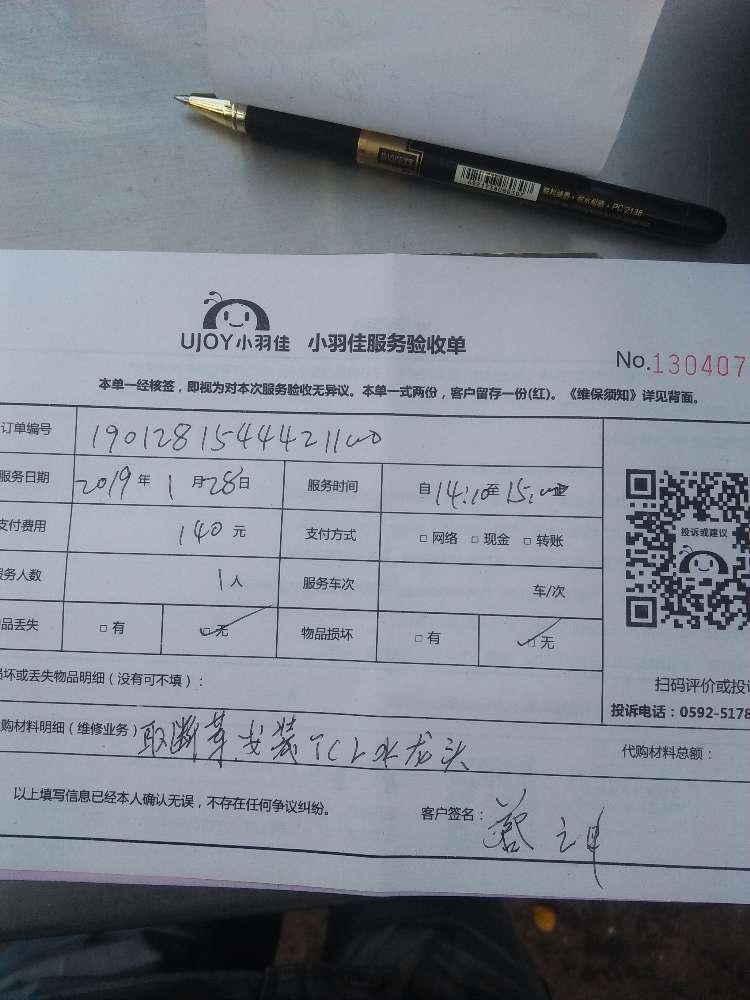 PC-2136
UJOY小羽佳 小羽佳服务验收单
No.130407
本单一经核签，即视为对本次服务验收无异议。本单一式两份，客户留存一份(红)。《维保须知》详见背面。
订单编号 1901281544421100
服务日期 2019年1月28日 服务时间 自14:10至15:00
支付费用 140元 支付方式 □网络 □现金 □转账
服务人数 1人 服务车次 车/次
品丢失 □有 □无 物品损坏 □有 □无
投诉或建议
坏或丢失物品明细（没有可不填）：
扫码评价或投诉
投诉电话：0592-5178
购材料明细（维修业务） 取断芽，安装TCL水龙头
代购材料总额：
以上填写信息已经本人确认无误，不存在任何争议纠纷。
客户签名：